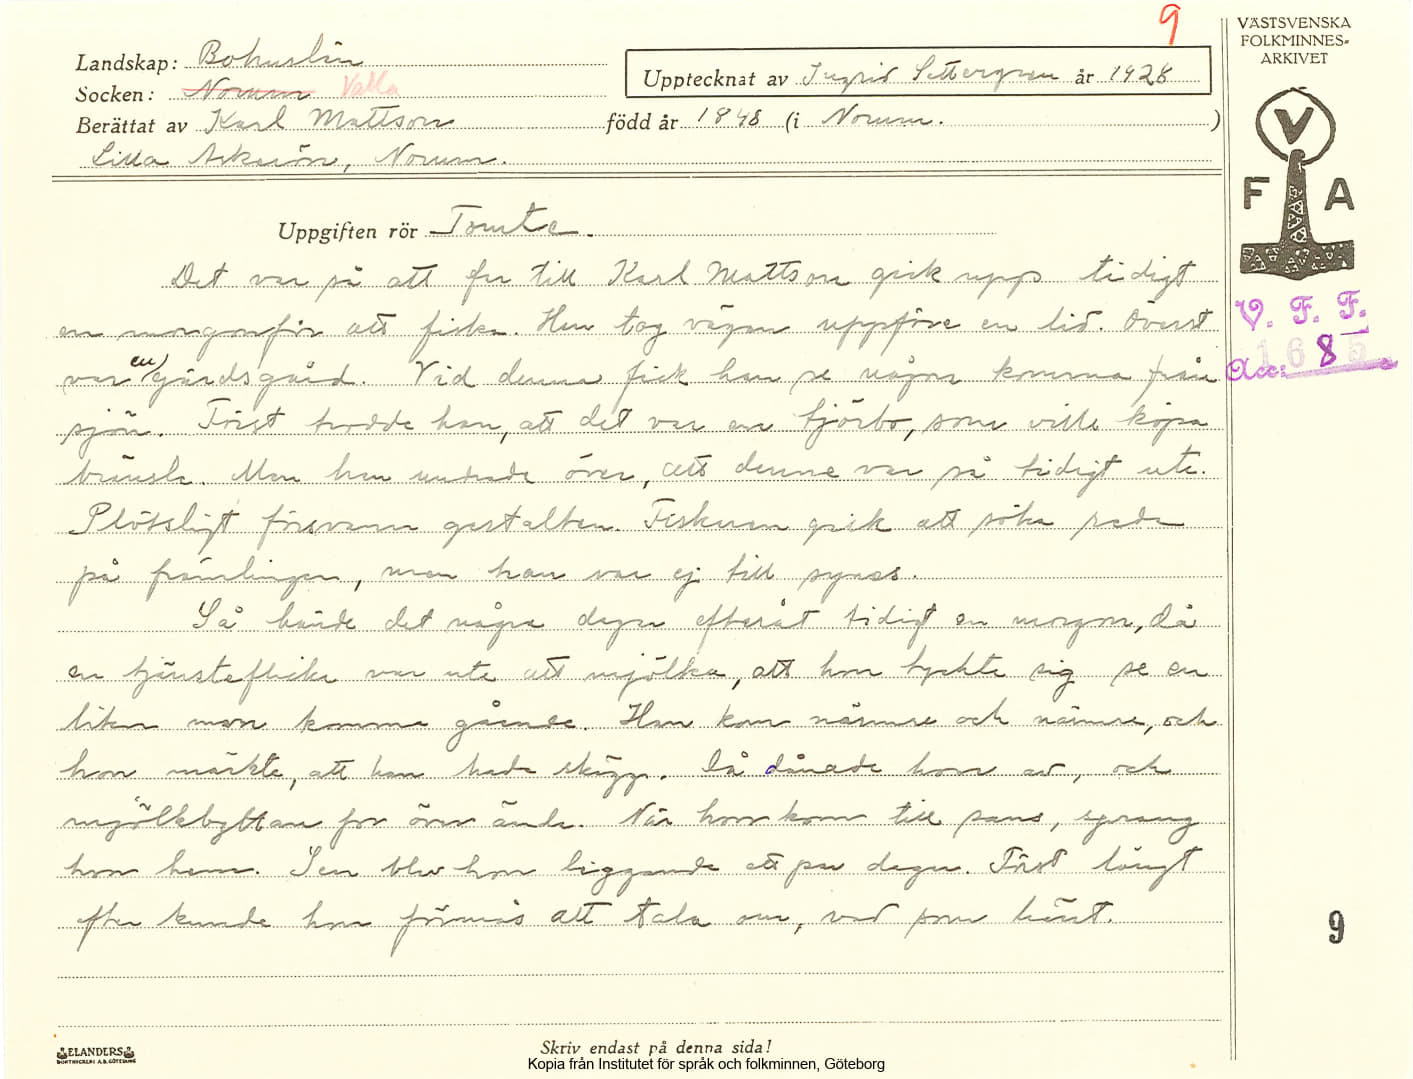 9
VÄSTSVENSKA
FOLKMINNES-
ARKIVET
Landskap: Bohuslän
Upptecknat av Ingrid Settergren år 1928
Socken: Norum Valla
Berättat av Karl Mattson född år 1848 (i Norum. )
Lilla Askerön, Norum.
V
F A
Uppgiften rör Tomte.
Det var så att far till Karl Mattson gick upp tidigt
en morgon för att fiska. Han tog vägen uppför en lid. Överst
var en gärdsgård. Vid denna fick han se någon komma från
sjön. Först trodde han, att det var en tjörbo, som ville köpa
bränsle. Men han undrade över, att denne var så tidigt ute.
Plötsligt försvann gestalten. Fiskaren gick att söka reda
på främlingen, men han var ej till synes.
Så hände det några dagar efteråt tidigt en morgon, då
en tjänsteflicka var ute att mjölka, att hon tyckte sig se en
liten man komma gående. Han kom närmre och närmre, och
hon märkte, att han hade skägg. Då dånade hon av, och
mjölkbyttan for över ända. När hon kom till sans, sprang
hon hem. Sen blev hon liggande ett par dagar. Först långt
efter kunde hon förmås att tala om, vad som hänt.
V. F. F.
Acc: 1685
9
ELANDERS
BOKTRYCKERI A.B. GÖTEBORG
Skriv endast på denna sida!
Kopia från Institutet för språk och folkminnen, Göteborg